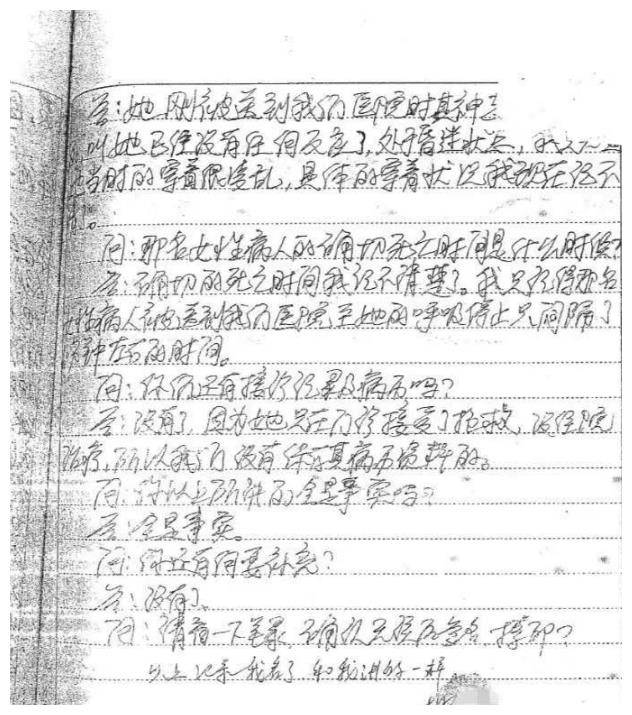 答:她刚被送到我们医院时其神志
叫她已经没有任何反应了,处于昏迷状态,
当时的穿着很凌乱,具体的穿着状况我现在记不
问:那名女性病人的确切死亡时间是什么时候?
答:确切的死亡时间我记不清楚了。我只记得那名
女性病人被送到我们医院至她的呼吸停止只间隔了
分钟左右的时间。
问:你们还有接诊记录及病历吗?
答:没有了,因为她只在门诊接受了抢救,没住院
治疗,所以我们没有保存其病历资料的。
问:你以上所讲的全是事实吗?
答:全是事实。
问:你还有何要补充?
答:没有了。
问:请看一下笔录,确认无误后签名、捺印?
以上记录我看了和我讲的一样